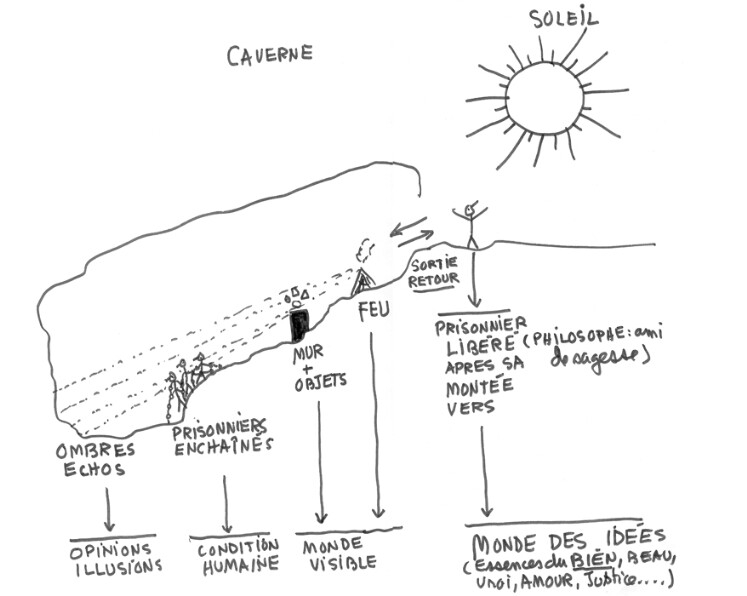 SOLEIL
CAVERNE
SORTIE
RETOUR
FEU
MUR
+
OBJETS
PRISONNIERS
ENCHAÎNÉS
OMBRES
ECHOS
PRISONNIER
LIBÉRÉ (PHILOSOPHE: ami
APRES SA de sagesse)
MONTÉE
VERS
OPINIONS
ILLUSIONS
CONDITION
HUMAINE
MONDE
VISIBLE
MONDE DES IDÉES
(Essences du BIEN, BEAU,
Vrai, AMOUR, Justice....)